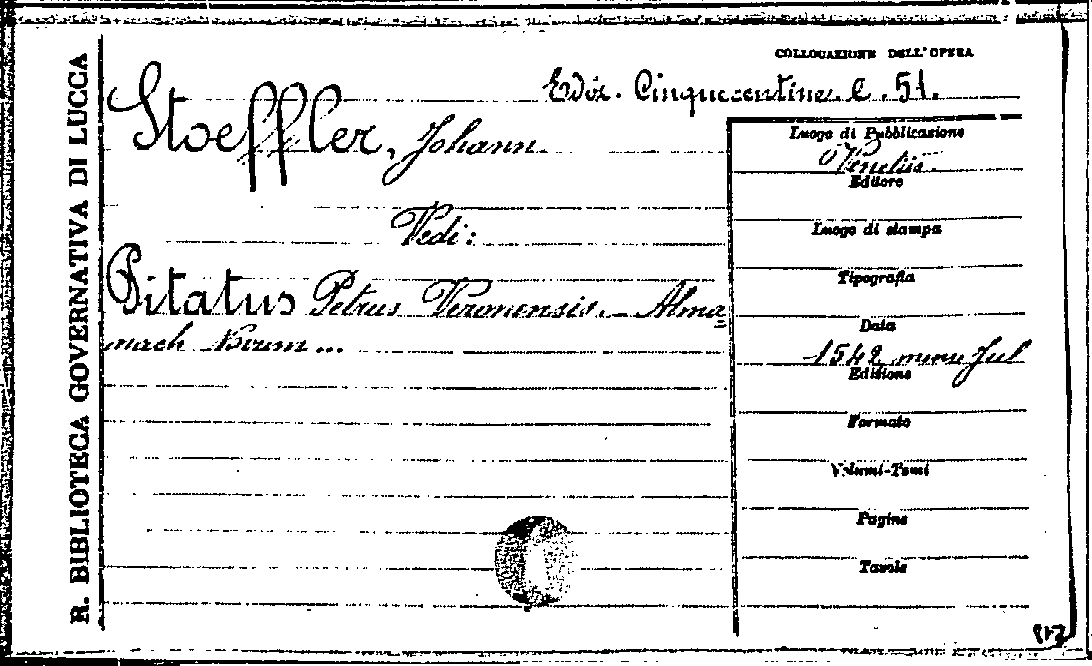 R. BIBLIOTECA GOVERNATIVA DI LUCCA
COLLOCAZIONE DELL'OPERA
Cinquecentine. C. 51.
Stoeffler, Johann.
Vedi:
Pitatus Petrus Veronensis. - Alma=
nach Novum...
Luogo di Pubblicazione
Venetiis.
Editore
Luogo di stampa
Tipografia
Data
1542 mense Jul
Edizione
Formato
Volumi-Tomi
Pagine
Tavole